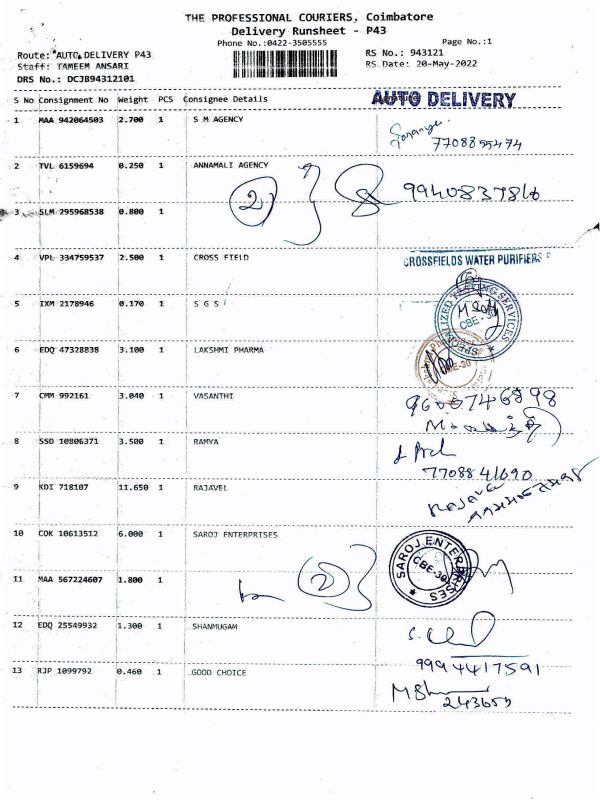 THE PROFESSIONAL COURIERS, Coimbatore
Delivery Runsheet - P43
Phone No.:0422-3505555
Page No.:1
Route: AUTO DELIVERY P43
RS No.: 943121
Staff: TAMEEM ANSARI
RS Date: 20-May-2022
DRS No.: DCJB94312101
S No Consignment No Weight PCS Consignee Details
AUTO DELIVERY
1 MAA 942064503 2.700 1 S M AGENCY
7708855474
2 TVL 6159694 0.250 1 ANNAMALI AGENCY
2
3 SLM 295968538 0.800 1
4 VPL 334759537 2.500 1 CROSS FIELD
CROSSFIELDS WATER PURIFIERS
5 IXM 2178946 0.170 1 S G S
SPECIALIZED TESTING SERVICES
CBE-30
6 EDQ 47328838 3.100 1 LAKSHMI PHARMA
7 CMM 992161 3.040 1 VASANTHI
8 SSD 10806371 3.500 1 RAMYA
7708841690
9 KDI 718107 11.650 1 RAJAVEL
10 COK 10613512 6.000 1 SAROJ ENTERPRISES
SAROJ ENTERPRISES
CBE-30
11 MAA 567224607 1.800 1
2
12 EDQ 25549932 1.300 1 SHANMUGAM
9994417591
13 RJP 1099792 0.460 1 GOOD CHOICE